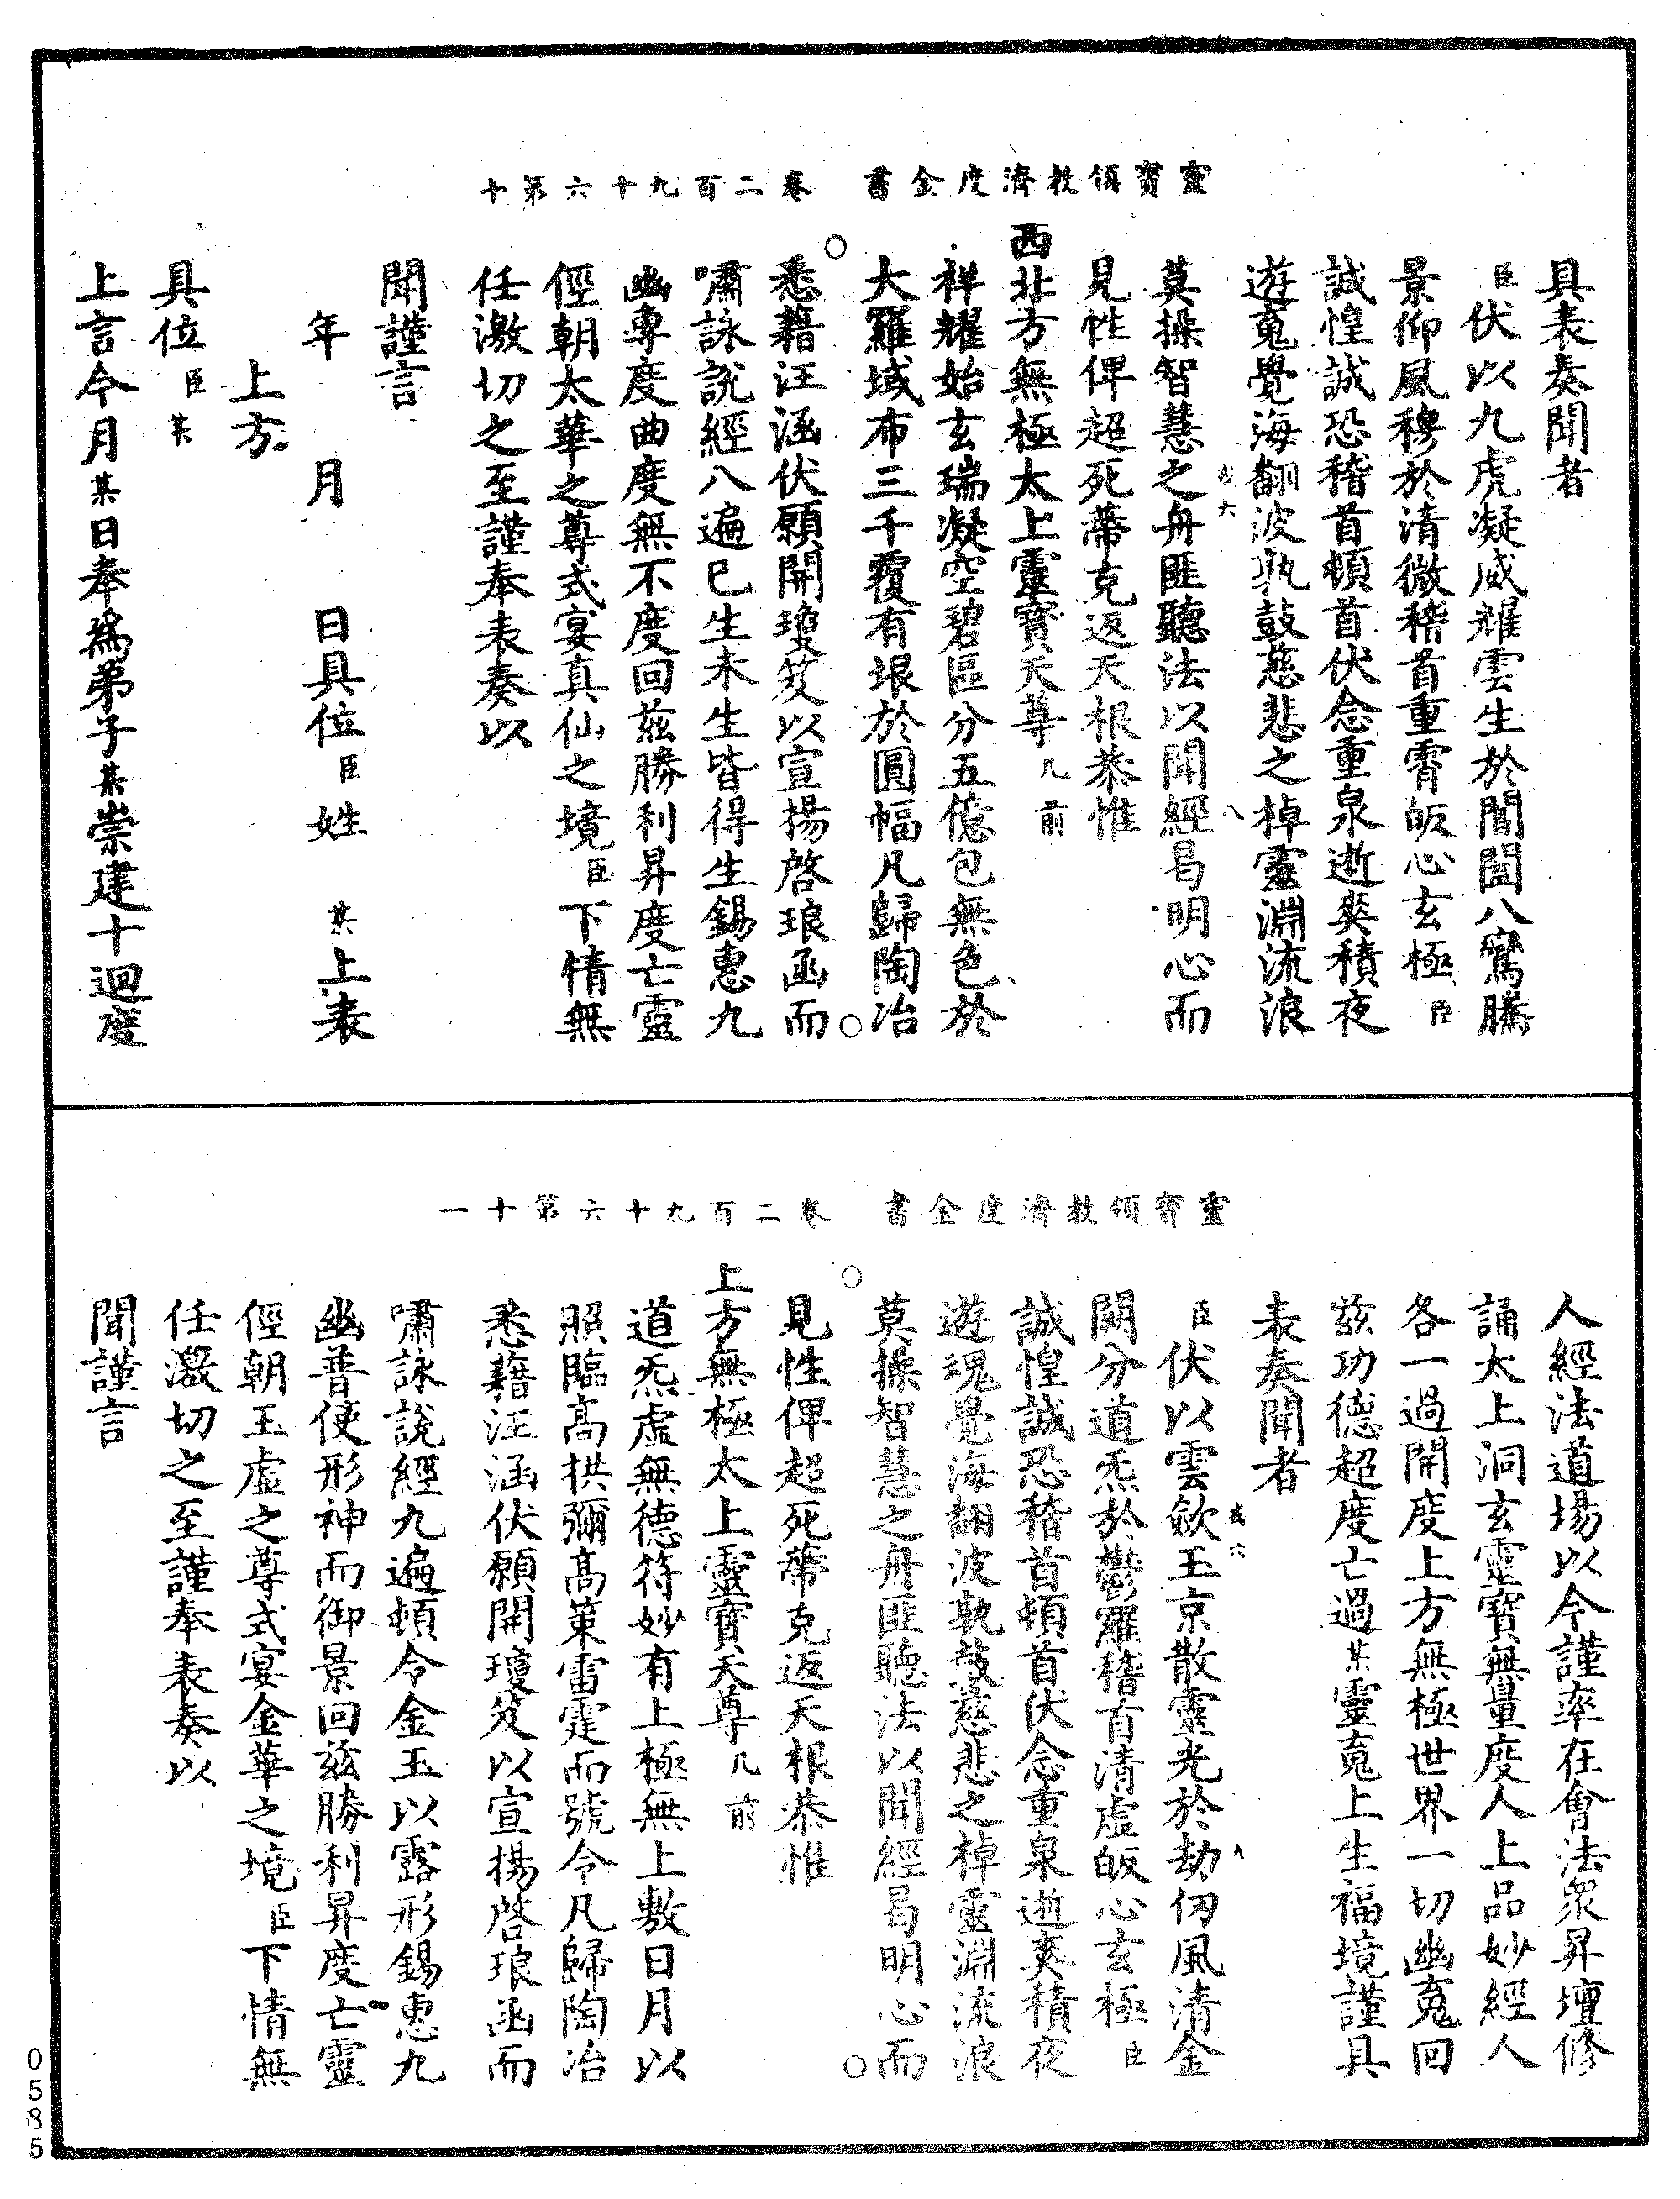 靈寶領教濟度金書　卷二百九十六第十
具表奏聞者
臣伏以九虎凝威耀雲生於閶闔八鸞騰
景仰風穆於清微稽首重霄皈心玄極臣
誠惶誠恐稽首頓首伏念重泉逝矣積夜
遊䰟覺海翻波孰鼓慈悲之棹靈淵流浪
莫操智慧之舟匪聽法以聞經曷明心而
見性俾超死蔕克返天根恭惟
西北方無極太上靈寶天尊几前
祥耀始玄瑞凝空碧區分五億包無色於
大羅域布三千覆有垠於圓幅凡歸陶冶
悉藉汪涵伏願開瓊笈以宣揚啓琅函而
嘯詠說經八遍已生未生皆得生錫惠九
幽專度曲度無不度回茲勝利昇度亡靈
徑朝太華之尊式宴真仙之境臣下情無
任激切之至謹奉表奏以
聞謹言
年　月　日具位臣姓　某上表
上方
具位臣某
上言今月某日奉爲弟子某崇建十迴度
靈寶領教濟度金書　卷二百九十六第十一
人經法道場以今謹率在會法衆昇壇修
誦太上洞玄靈寶無量度人上品妙經人
各一過開度上方無極世界一切幽䰟回
茲功德超度亡過某靈䰟上生福境謹具
表奏聞者
臣伏以雲歛玉京散靈光於劫仞風清金
闕分道炁於鬱羅稽首清虛皈心玄極臣
誠惶誠恐稽首頓首伏念重泉逝矣積夜
遊魂覺海翻波孰鼓慈悲之棹靈淵流浪
莫操智慧之舟匪聽法以聞經曷明心而
見性俾超死蔕克返天根恭惟
上方無極太上靈寶天尊几前
道炁虛無德符妙有上極無上敷日月以
照臨高拱彌高策雷霆而號令凡歸陶冶
悉藉汪涵伏願開瓊笈以宣揚啓琅函而
嘯詠說經九遍頓令金玉以露形錫惠九
幽普使形神而御景回茲勝利昇度亡靈
徑朝玉虛之尊式宴金華之境臣下情無
任激切之至謹奉表奏以
聞謹言
0585